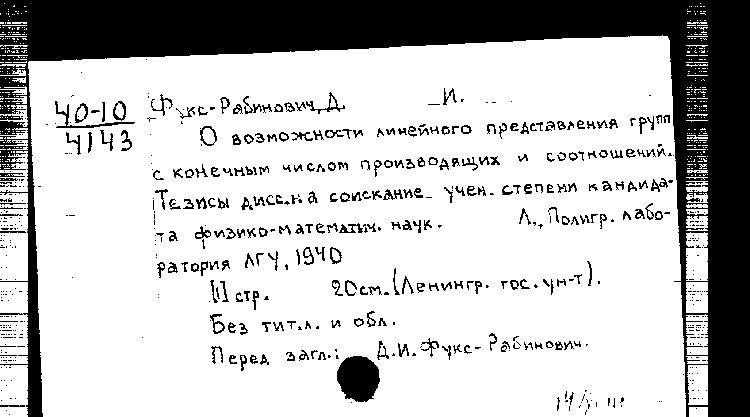 40-10
4143
Фукс-Рабинович, Д. И.
О возможности линейного представления групп
с конечным числом производящих и соотношений.
Тезисы дисс. на соискание учен. степени кандида-
та физико-математич. наук. Л., Полигр. лабо-
ратория ЛГУ, 1940
[1] стр. 20 см. (Ленингр. гос. ун-т).
Без тит. л. и обл.
Перед загл.: Д.И. Фукс-Рабинович.